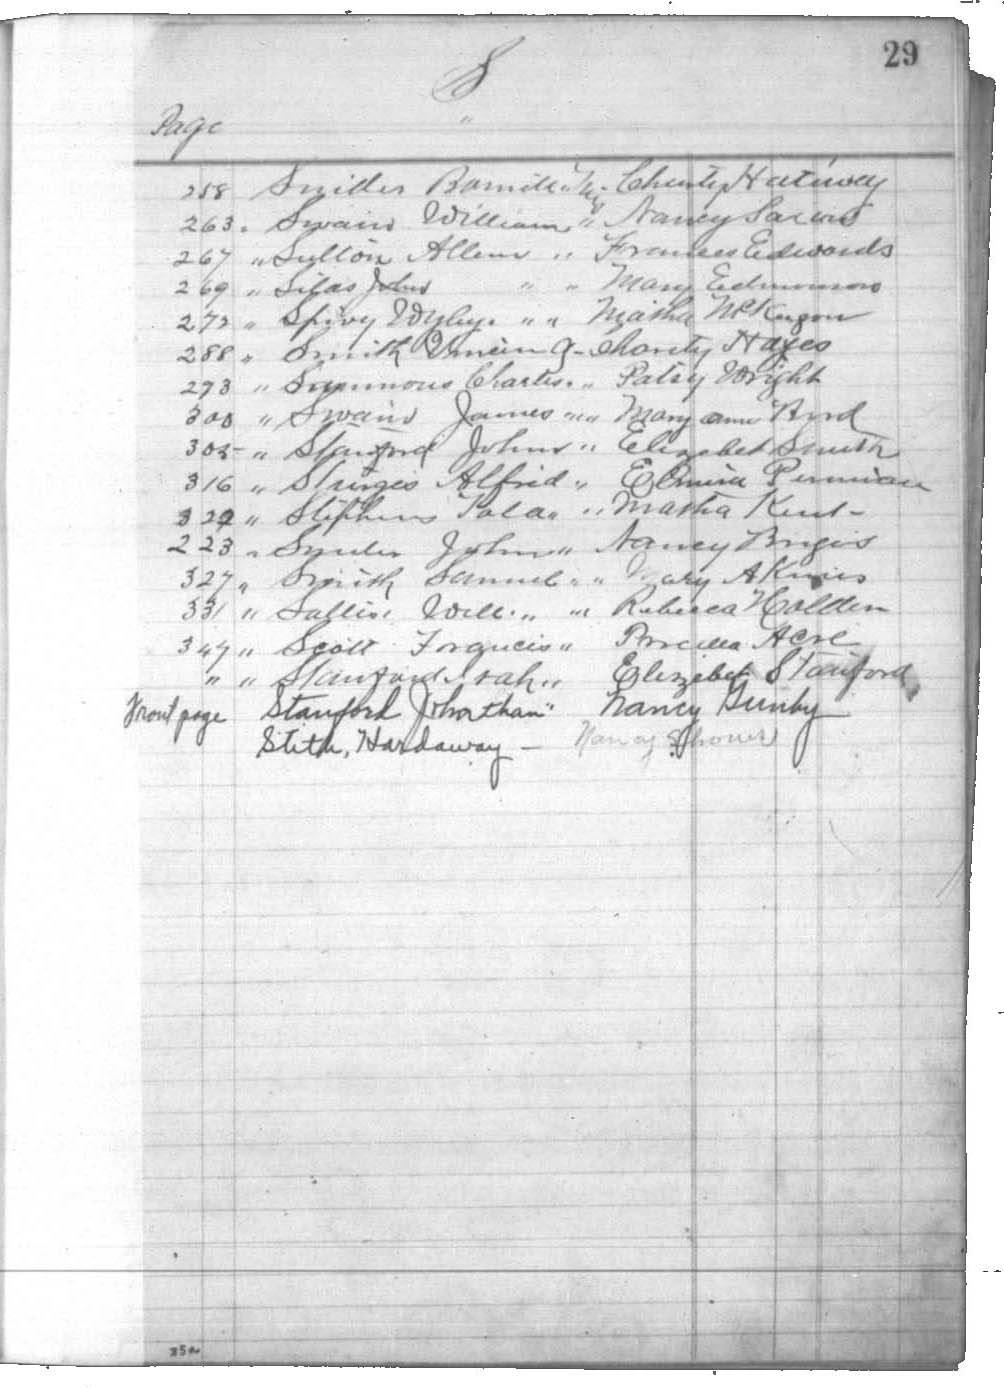 29
S
Page "
258 Snider Barnill " Charity Hataway
263 " Swain William " Nancy
267 " Sutton Allen " Frances Edwards
269 " Silas John " " Mary Edmonson
272 " Spivy Wyley " " Martha
288 " Smith G - Charity Hayes
293 " Simmons Charles " Patsy Wright
300 " Swain James " " Mary ann Byrd
305 " Stanford John " Elizabet Smith
316 " Sturges Alfred " Elmira
322 " Stephens " " Martha Kent -
223 " Snider John " Nancy
327 " Smith Samuel " " Mary Akins
331 " Sallis Will " " Rebecca Holden
347 " Scott " Priscilla Acre
" " Stanford " Elizabet Stanford
Front page Stanford Johnathan " Nancy Gunby
Stith, Hardaway - Nancy
352